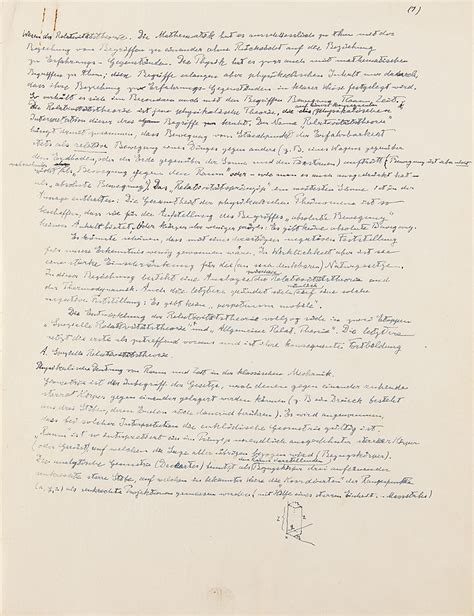 (1)
Wesen der Relativitätstheorie. Die Mathematik hat es ausschliesslich zu thun mit der
Beziehung von Begriffen zu einander ohne Rücksicht auf die Beziehung
zu Erfahrungs-Gegenständen. Die Physik hat es zwar auch mit mathematischen
Begriffen zu thun; diese Begriffe erlangen aber physikalischen Inhalt nur dadurch,
dass ihre Beziehung zu Erfahrungs-Gegenständen in klarer Weise festgelegt wird.
So verhält es sich im Besonderen auch mit den Begriffen Bewegung, Raum, Zeit.
die Relativitätstheorie ist jene physikalische Theorie, die physikalische
Interpretation dieser drei Begriffe beruht. Der Name „Relativitätstheorie"
hängt damit zusammen, dass Bewegung vom Standpunkt der Erfahrbarkeit
stets als relative Bewegung eines Dinges gegen andere (z. B. eines Wagens gegenüber
dem Erdboden, oder die Erde gegenüber der Sonne und den Fixsternen) auftritt (Bewegung ist aber
nicht als „Bewegung gegen den Raum" oder – wie man es auch ausgedrückt hat –
als „absolute Bewegung"). Das „Relativitätsprinzip" im weitesten Sinne ist in der
Aussage enthalten: Die Gesamtheit der physikalischen Phänomene ist so
beschaffen, dass sie für die Aufstellung des Begriffes „absolute Bewegung"
keinen Anhalt bietet. Oder kürzer aber weniger präzis: Es gibt keine absolute Bewegung.
Es könnte scheinen, dass mit einer derartigen negativen Feststellung
für unsere Erkenntnis wenig gewonnen wäre. In Wirklichkeit aber ist das
eine starke Einschränkung für die (an sich denkbaren) Naturgesetze.
In dieser Beziehung besteht eine Analogie zwischen Relativitätstheorie und
der Thermodynamik. Auch die letztere gründet sich auf eine solche
negative Feststellung: „Es gibt kein perpetuum mobile".
Die Entwickelung der Relativitätstheorie vollzog sich in zwei Etappen
„Spezielle Relativitätstheorie" und „Allgemeine Relat. Theorie". Die letztere
setzt die erste als zutreffend voraus und ist ihre konsequente Fortbildung
A. Spezielle Relativitätstheorie.
Physikalische Deutung von Raum und Zeit in der klassischen Mechanik.
Geometrie ist der Inbegriff der Gesetze, nach denen gegen einander ruhende
starre Körper gegen einander gelagert werden können (z. B. ein Dreieck besteht
aus drei Stäben, deren Enden sich dauernd berühren). Es wird angenommen,
dass bei solcher Interpretation die euklidische Geometrie gültig ist.
„Raum" ist so interpretiert im Prinzip unendlich ausgedehnter starrer Körper
(oder Gerüst), auf welchen die Lage aller übrigen bezogen wird (Bezugskörper).
Die analytische Geometrie (Descartes) benutzt als Bezugskörper drei auf einander
senkrechte starre Stäbe, auf welchen die „Koordinaten" der Raumpunkte
(x, y, z) als senkrechte Projektionen gemessen werden (mit Hilfe eines starren Einheits-Massstabes)